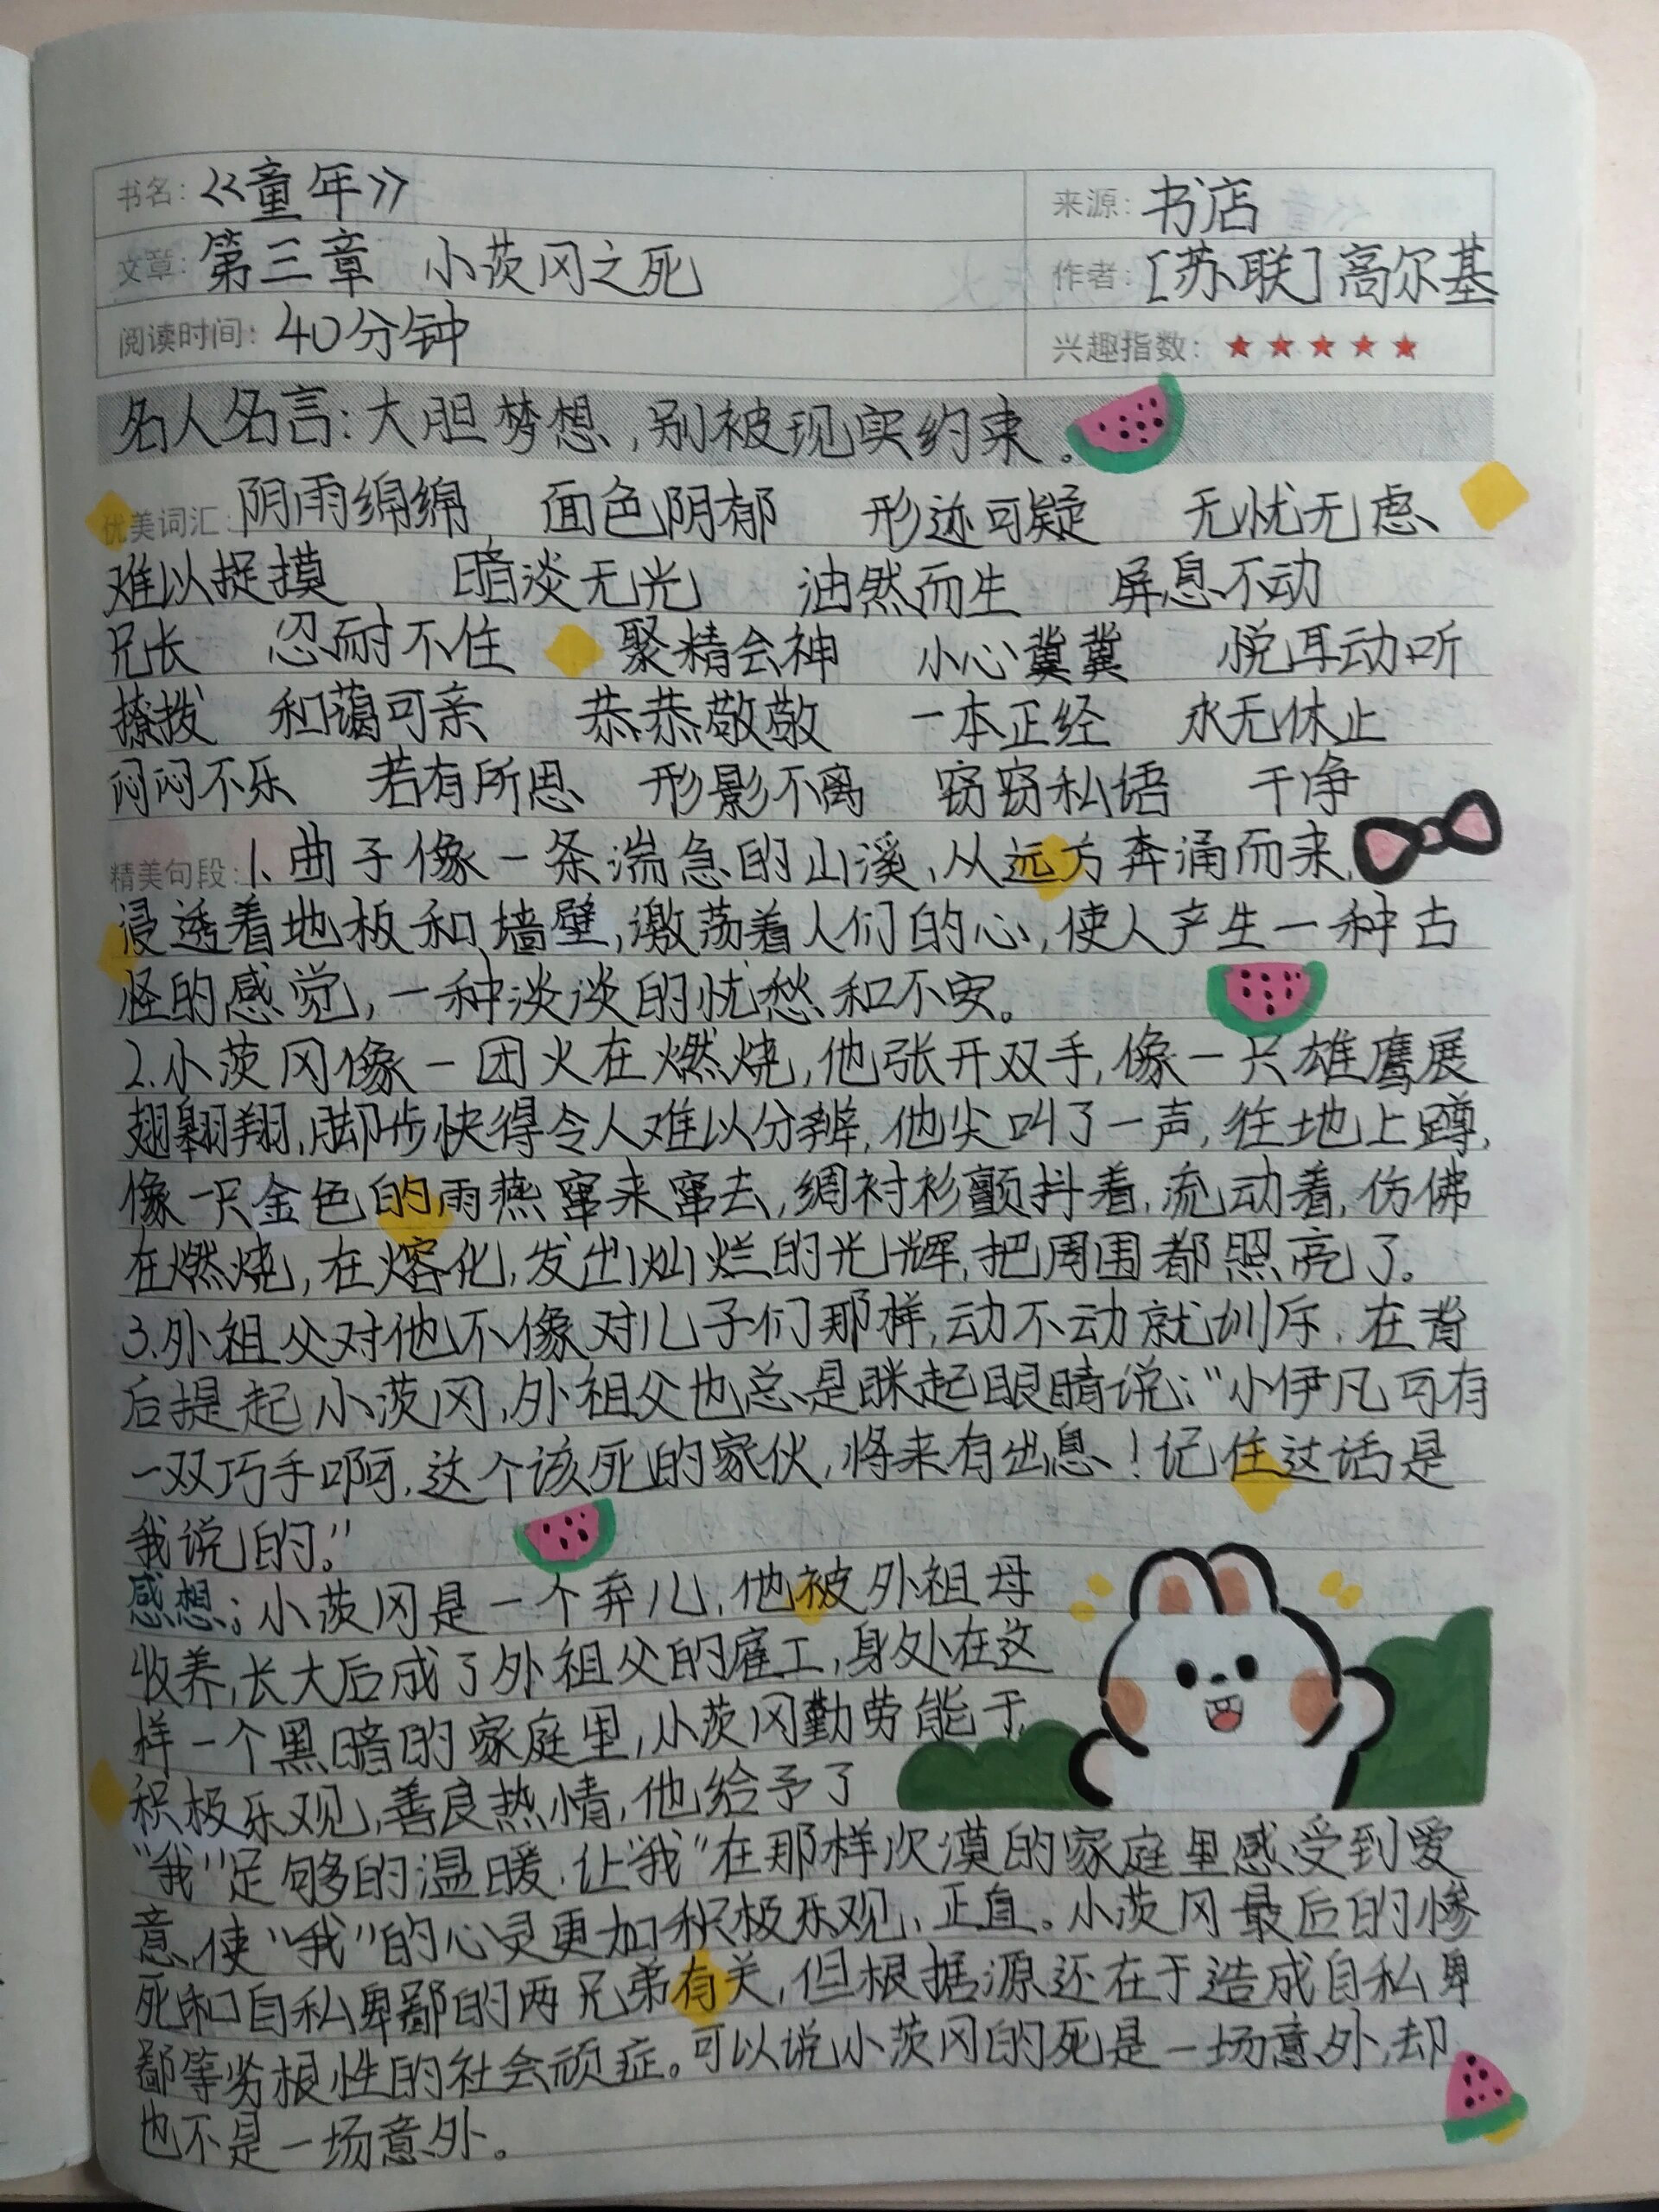 书名：《童年》 来源：书店
文章：第三章 小茨冈之死 作者：[苏联]高尔基
阅读时间：40分钟 兴趣指数：★★★★★
名人名言：大胆梦想，别被现实约束。
优美词汇：阴雨绵绵 面色阴郁 形迹可疑 无忧无虑
难以捉摸 暗淡无光 油然而生 屏息不动
兄长 忍耐不住 聚精会神 小心冀冀 悦耳动听
撩拨 和蔼可亲 恭恭敬敬 一本正经 永无休止
闷闷不乐 若有所思 形影不离 窃窃私语 干净
精美句段：1.曲子像一条湍急的山溪，从远方奔涌而来，
浸透着地板和墙壁，激荡着人们的心，使人产生一种古
怪的感觉，一种淡淡的忧愁和不安。
2.小茨冈像一团火在燃烧，他张开双手，像一只雄鹰展
翅翱翔，脚步快得令人难以分辨，他尖叫了一声，往地上蹲，
像一只金色的雨燕窜来窜去，绸衬衫颤抖着，流动着，仿佛
在燃烧，在熔化，发出灿烂的光辉，把周围都照亮了。
3.外祖父对他不像对儿子们那样，动不动就训斥，在背
后提起小茨冈，外祖父也总是眯起眼睛说：“小伊凡可有
一双巧手啊，这个该死的家伙，将来有出息！记住这话是
我说的。”
感想：小茨冈是一个弃儿，他被外祖母
收养，长大后成了外祖父的雇工，身处在这
样一个黑暗的家庭里，小茨冈勤劳能干，
积极乐观，善良热情，他给予了
“我”足够的温暖，让“我”在那样次漠的家庭里感受到爱
意，使“我”的心灵更加积极乐观、正直。小茨冈最后的惨
死和自私卑鄙的两兄弟有关，但根据源还在于造成自私卑
鄙等劣根性的社会顽症。可以说小茨冈的死是一场意外，却
也不是一场意外。